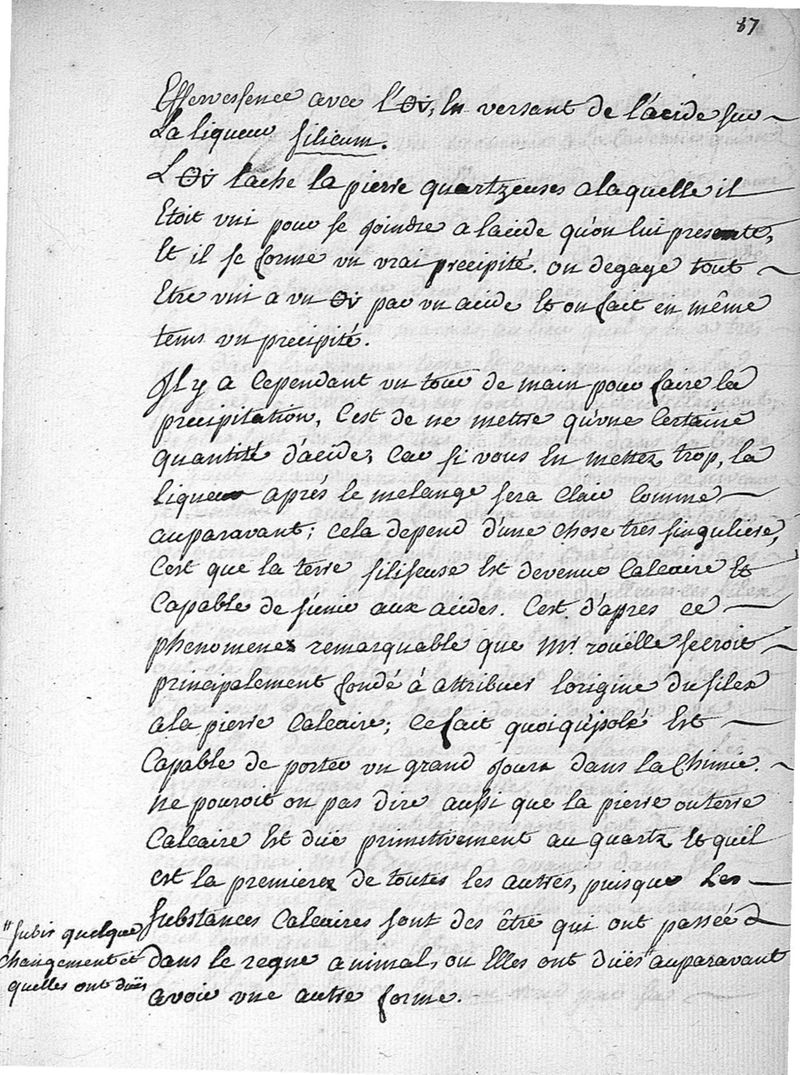 87
Effervesence avec l'🜔v, En versant de l'acide sur
La liqueur silicum.
L'🜔v lache la pierre quartzeuses a laquelle il
Etoit uni pour se joindre a lacide qu'on lui presente,
Et il se forme un vrai precipité. on degage tout
Etre uni a un 🜔v par un acide Et on fait en même
tems un precipité.
Il y a Cependant un tour de main pour faire la
precipitation, C'est de ne mettre qu'une Certaine
quantité d'acide, Car si vous En mettez trop, la
liqueur aprés le melange sera Clair Comme
auparavant; Cela depend d'une chose tres singuliere,
C'est que la terre siliseuse Est devenue Calcaire Et
Capable de s'unir aux acides. C'est d'apres ce
phenomenes remarquable que Mr. rouelle se croit
principalement fondé à attribuer l'origine du silex
a la pierre Calcaire; Ce fait quoiqu'isolé Est
Capable de porter un grand Jour dans la Chimie.
ne pouroit on pas dire aussi que la pierre ou terre
Calcaire Est duë primitivement au quartz Et quel
est la premiere de toutes les autres, puisque Les
substances Calcaires sont des être qui ont passée
dans le regne animal, ou Elles ont duës auparavant
avoir une autre forme.
# subir quelque
changement et
quelles ont duës